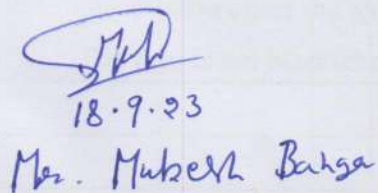 18.9.23
Mr. Mukesh Banga